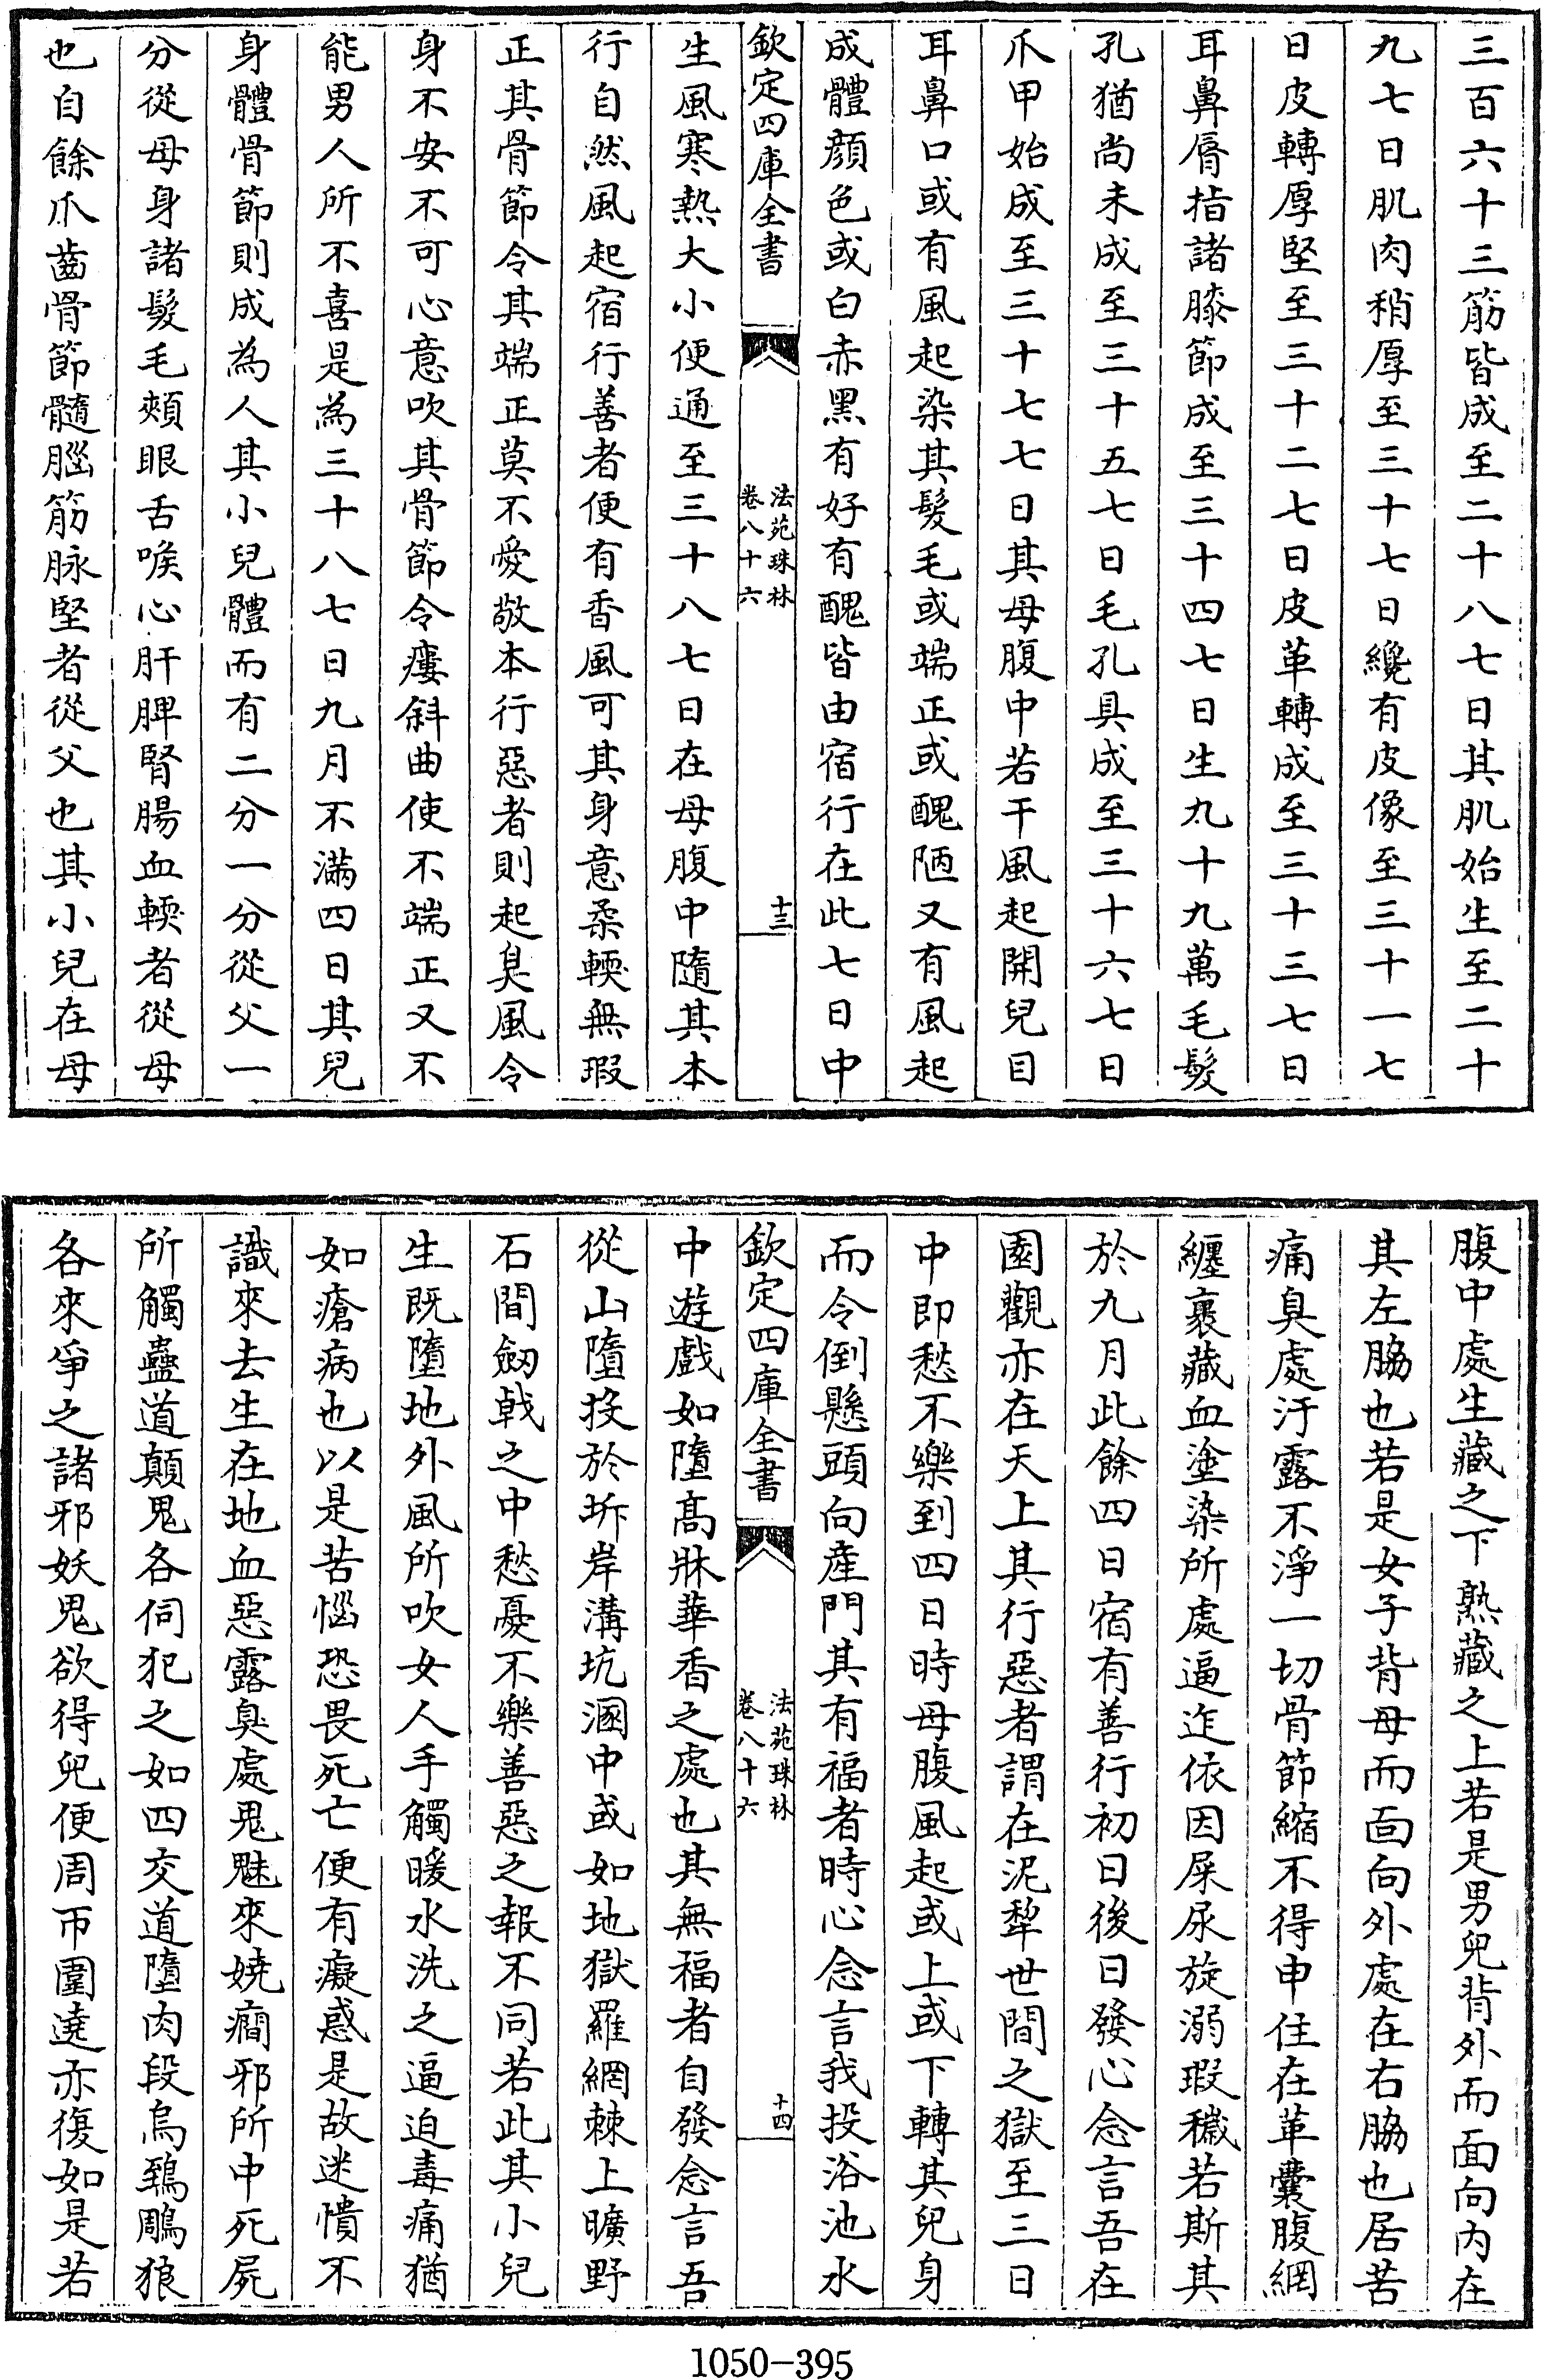 三百六十三筋皆成至二十八七日其肌始生至二十
九七日肌肉稍厚至三十七日纔有皮像至三十一七
日皮轉厚堅至三十二七日皮革轉成至三十三七日
耳鼻脣指諸膝節成至三十四七日生九十九萬毛髮
孔猶尚未成至三十五七日毛孔具成至三十六七日
爪甲始成至三十七七日其母腹中若干風起開兒目
耳鼻口或有風起染其髮毛或端正或醜陋又有風起
成體顔色或白赤黑有好有醜皆由宿行在此七日中
欽定四庫全書
法苑珠林
卷八十六
十三
生風寒熱大小便通至三十八七日在母腹中隨其本
行自然風起宿行善者便有香風可其身意柔輭無瑕
正其骨節令其端正莫不愛敬本行惡者則起臭風令
身不安不可心意吹其骨節令瘻斜曲使不端正又不
能男人所不喜是為三十八七日九月不滿四日其兒
身體骨節則成為人其小兒體而有二分一分從父一
分從母身諸髮毛頰眼舌喉心肝脾腎腸血輭者從母
也自餘爪齒骨節髓腦筋脉堅者從父也其小兒在母
腹中處生藏之下熟藏之上若是男兒背外而面向内在
其左脇也若是女子背母而面向外處在右脇也居苦
痛臭處汙露不淨一切骨節縮不得申住在革囊腹網
纏裹藏血塗染所處逼迮依因屎尿旋溺瑕穢若斯其
於九月此餘四日宿有善行初日後日發心念言吾在
園觀亦在天上其行惡者謂在泥犂世間之獄至三日
中即愁不樂到四日時母腹風起或上或下轉其兒身
而令倒懸頭向産門其有福者時心念言我投浴池水
欽定四庫全書
法苑珠林
卷八十六
十四
中遊戲如墮髙牀華香之處也其無福者自發念言吾
從山墮投於坼岸溝坑溷中或如地獄羅網棘上曠野
石間劒戟之中愁憂不樂善惡之報不同若此其小兒
生既墮地外風所吹女人手觸暖水洗之逼迫毒痛猶
如瘡病也以是苦惱恐畏死亡便有癡惑是故迷憒不
識來去生在地血惡露臭處鬼魅來嬈癎邪所中死屍
所觸蠱道顛鬼各伺犯之如四交道墮肉段烏鵄鵰狼
各來爭之諸邪妖鬼欲得兒便周帀圍遶亦復如是若
1050-395